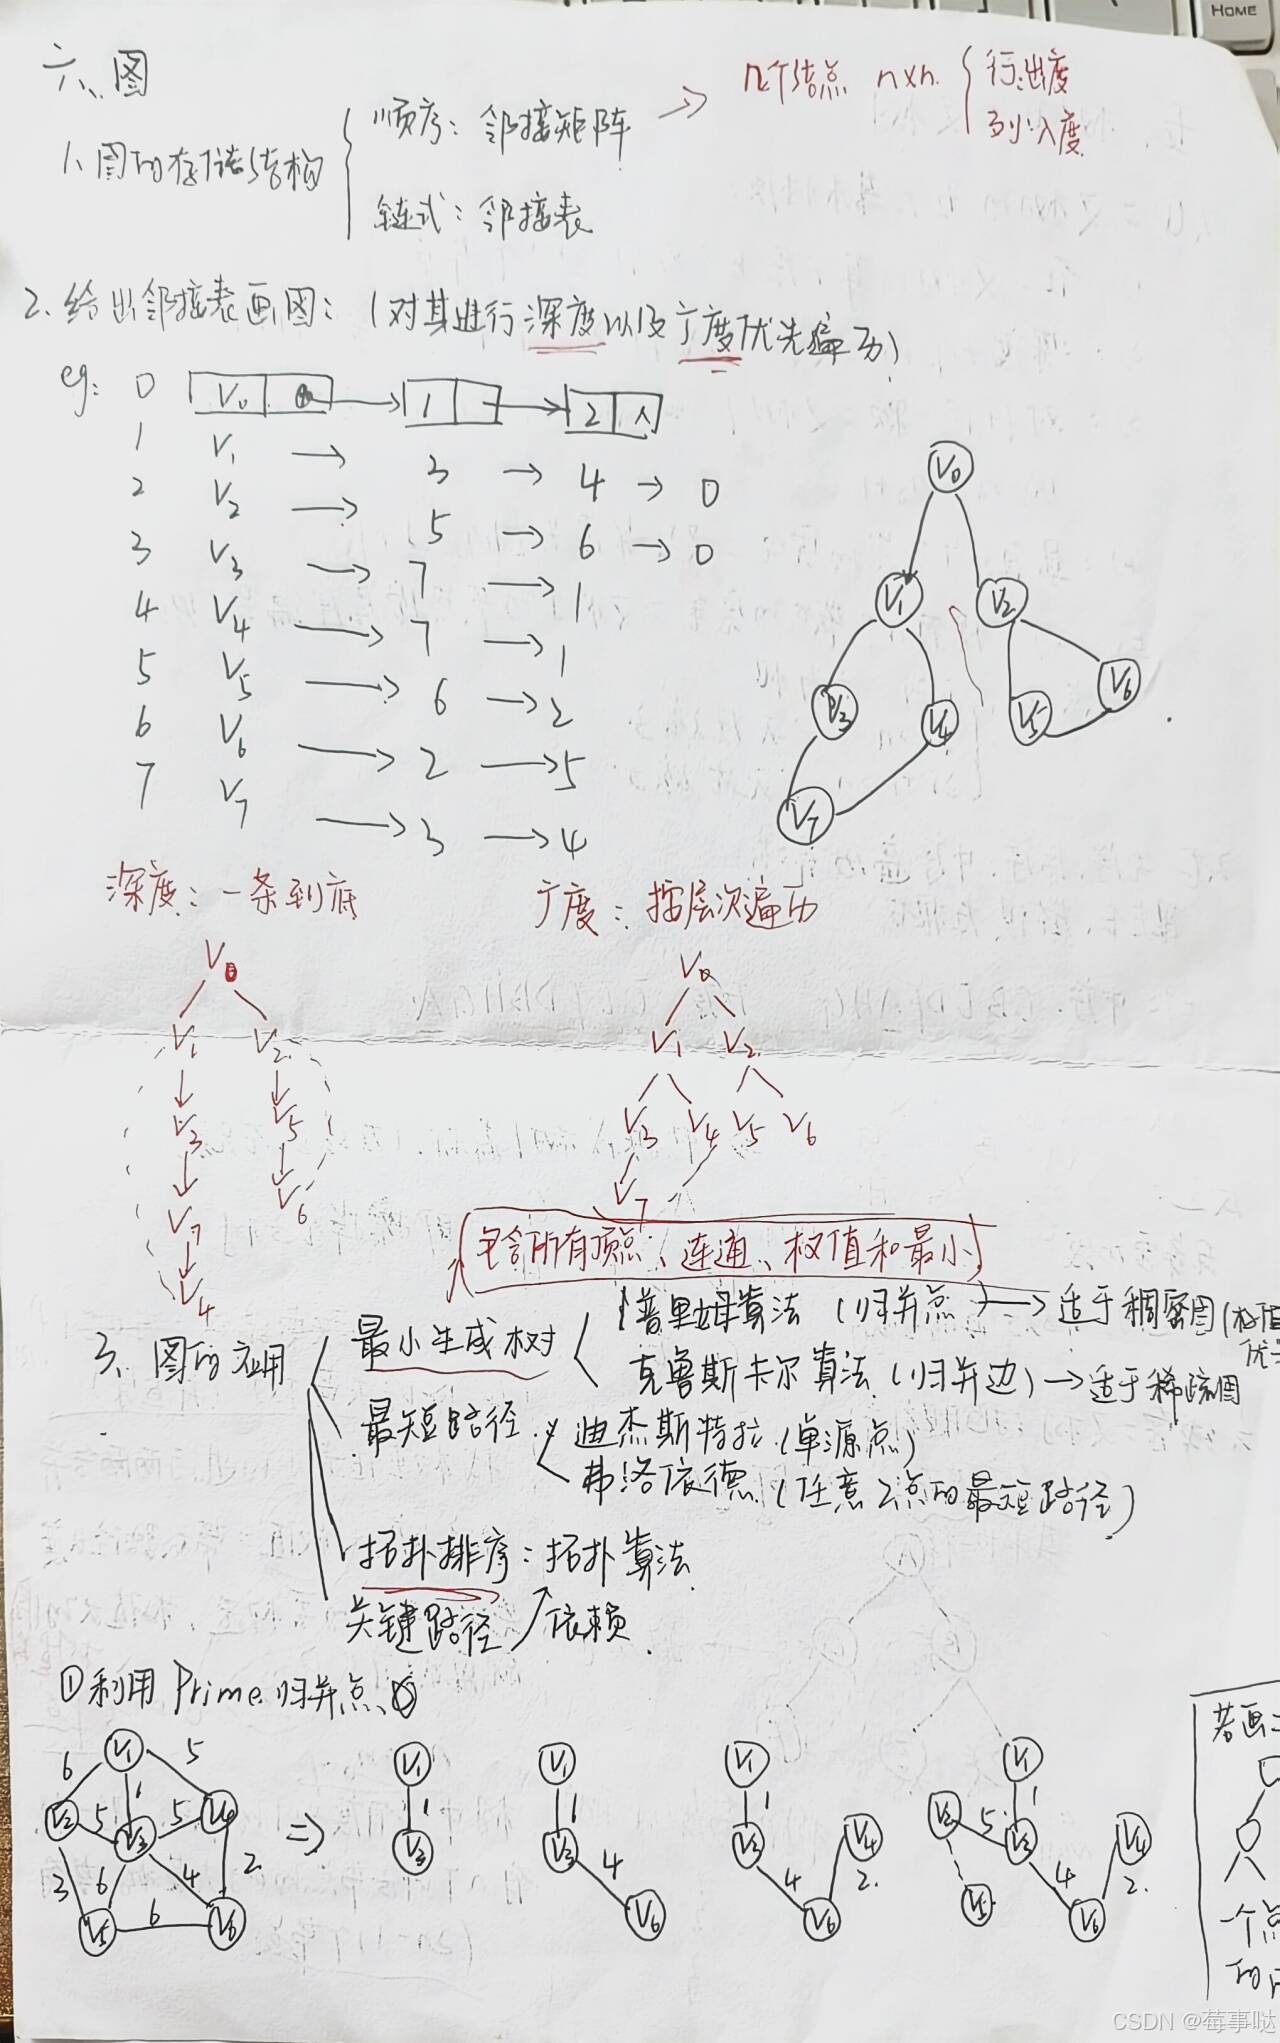 HOME
六、图
1、图的存储结构
顺序：邻接矩阵 → n个结点 n×n
行：出度
列：入度
链式：邻接表
2. 给出邻接表画图：（对其进行深度以及广度优先遍历）
eg: 0 V0 → 1 → 2 ∧
1 V1 → 3 → 4 → 0
2 V2 → 5 → 6 → 0
3 V3 → 7 → 1
4 V4 → 7 → 1
5 V5 → 6 → 2
6 V6 → 2 → 5
7 V7 → 3 → 4
V0
V1 V2
V3 V4 V5 V6
V7
深度：一条到底
广度：按层次遍历
V0
V1 V2
V3 V5
V7 V6
V4
V0
V1 V2
V3 V4 V5 V6
V7
包含所有顶点、连通、权值和最小
3、图的应用
最小生成树
普里姆算法（归并点）→ 适于稠密图
克鲁斯卡尔算法（归并边）→ 适于稀疏图
最短路径
迪杰斯特拉（单源点）
弗洛依德（任意2点的最短路径）
拓扑排序：拓扑算法
关键路径 依赖
①利用Prime归并点
V1 V2 V3 V4 V5 V6
6 5 1 5 5 3 6 4 2 6
⇒
V1 1 V3
V1 1 V3 4 V6
V1 1 V3 4 V6 2 V4
V1 1 V3 5 V2 4 V6 2 V4 V5
若画
一个点
的
CSDN @莓事哒